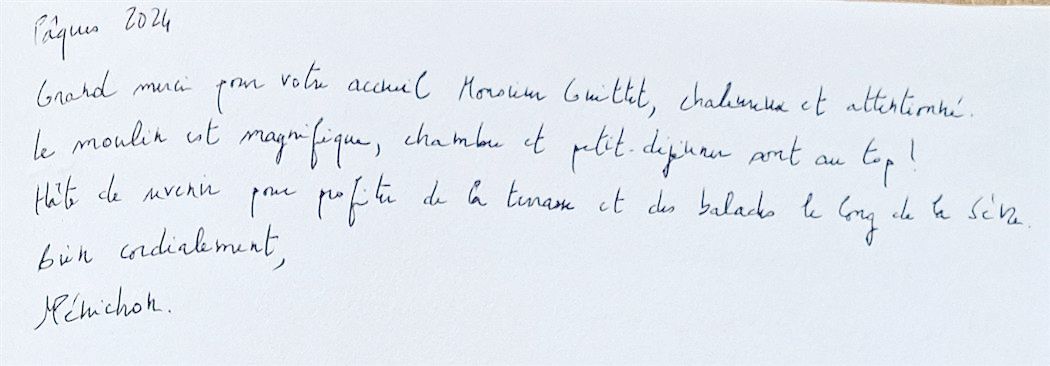 Pâques 2024
Grand merci pour votre accueil Monsieur Guittet, chaleureux et attentionné.
Le moulin est magnifique, chambre et petit-déjeuner sont au top !
Hâte de revenir pour profiter de la terrasse et des balades le long de la Sèvre.
Bien cordialement,